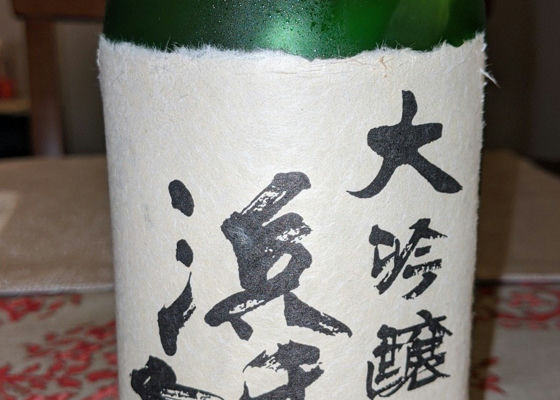 大吟醸
浜